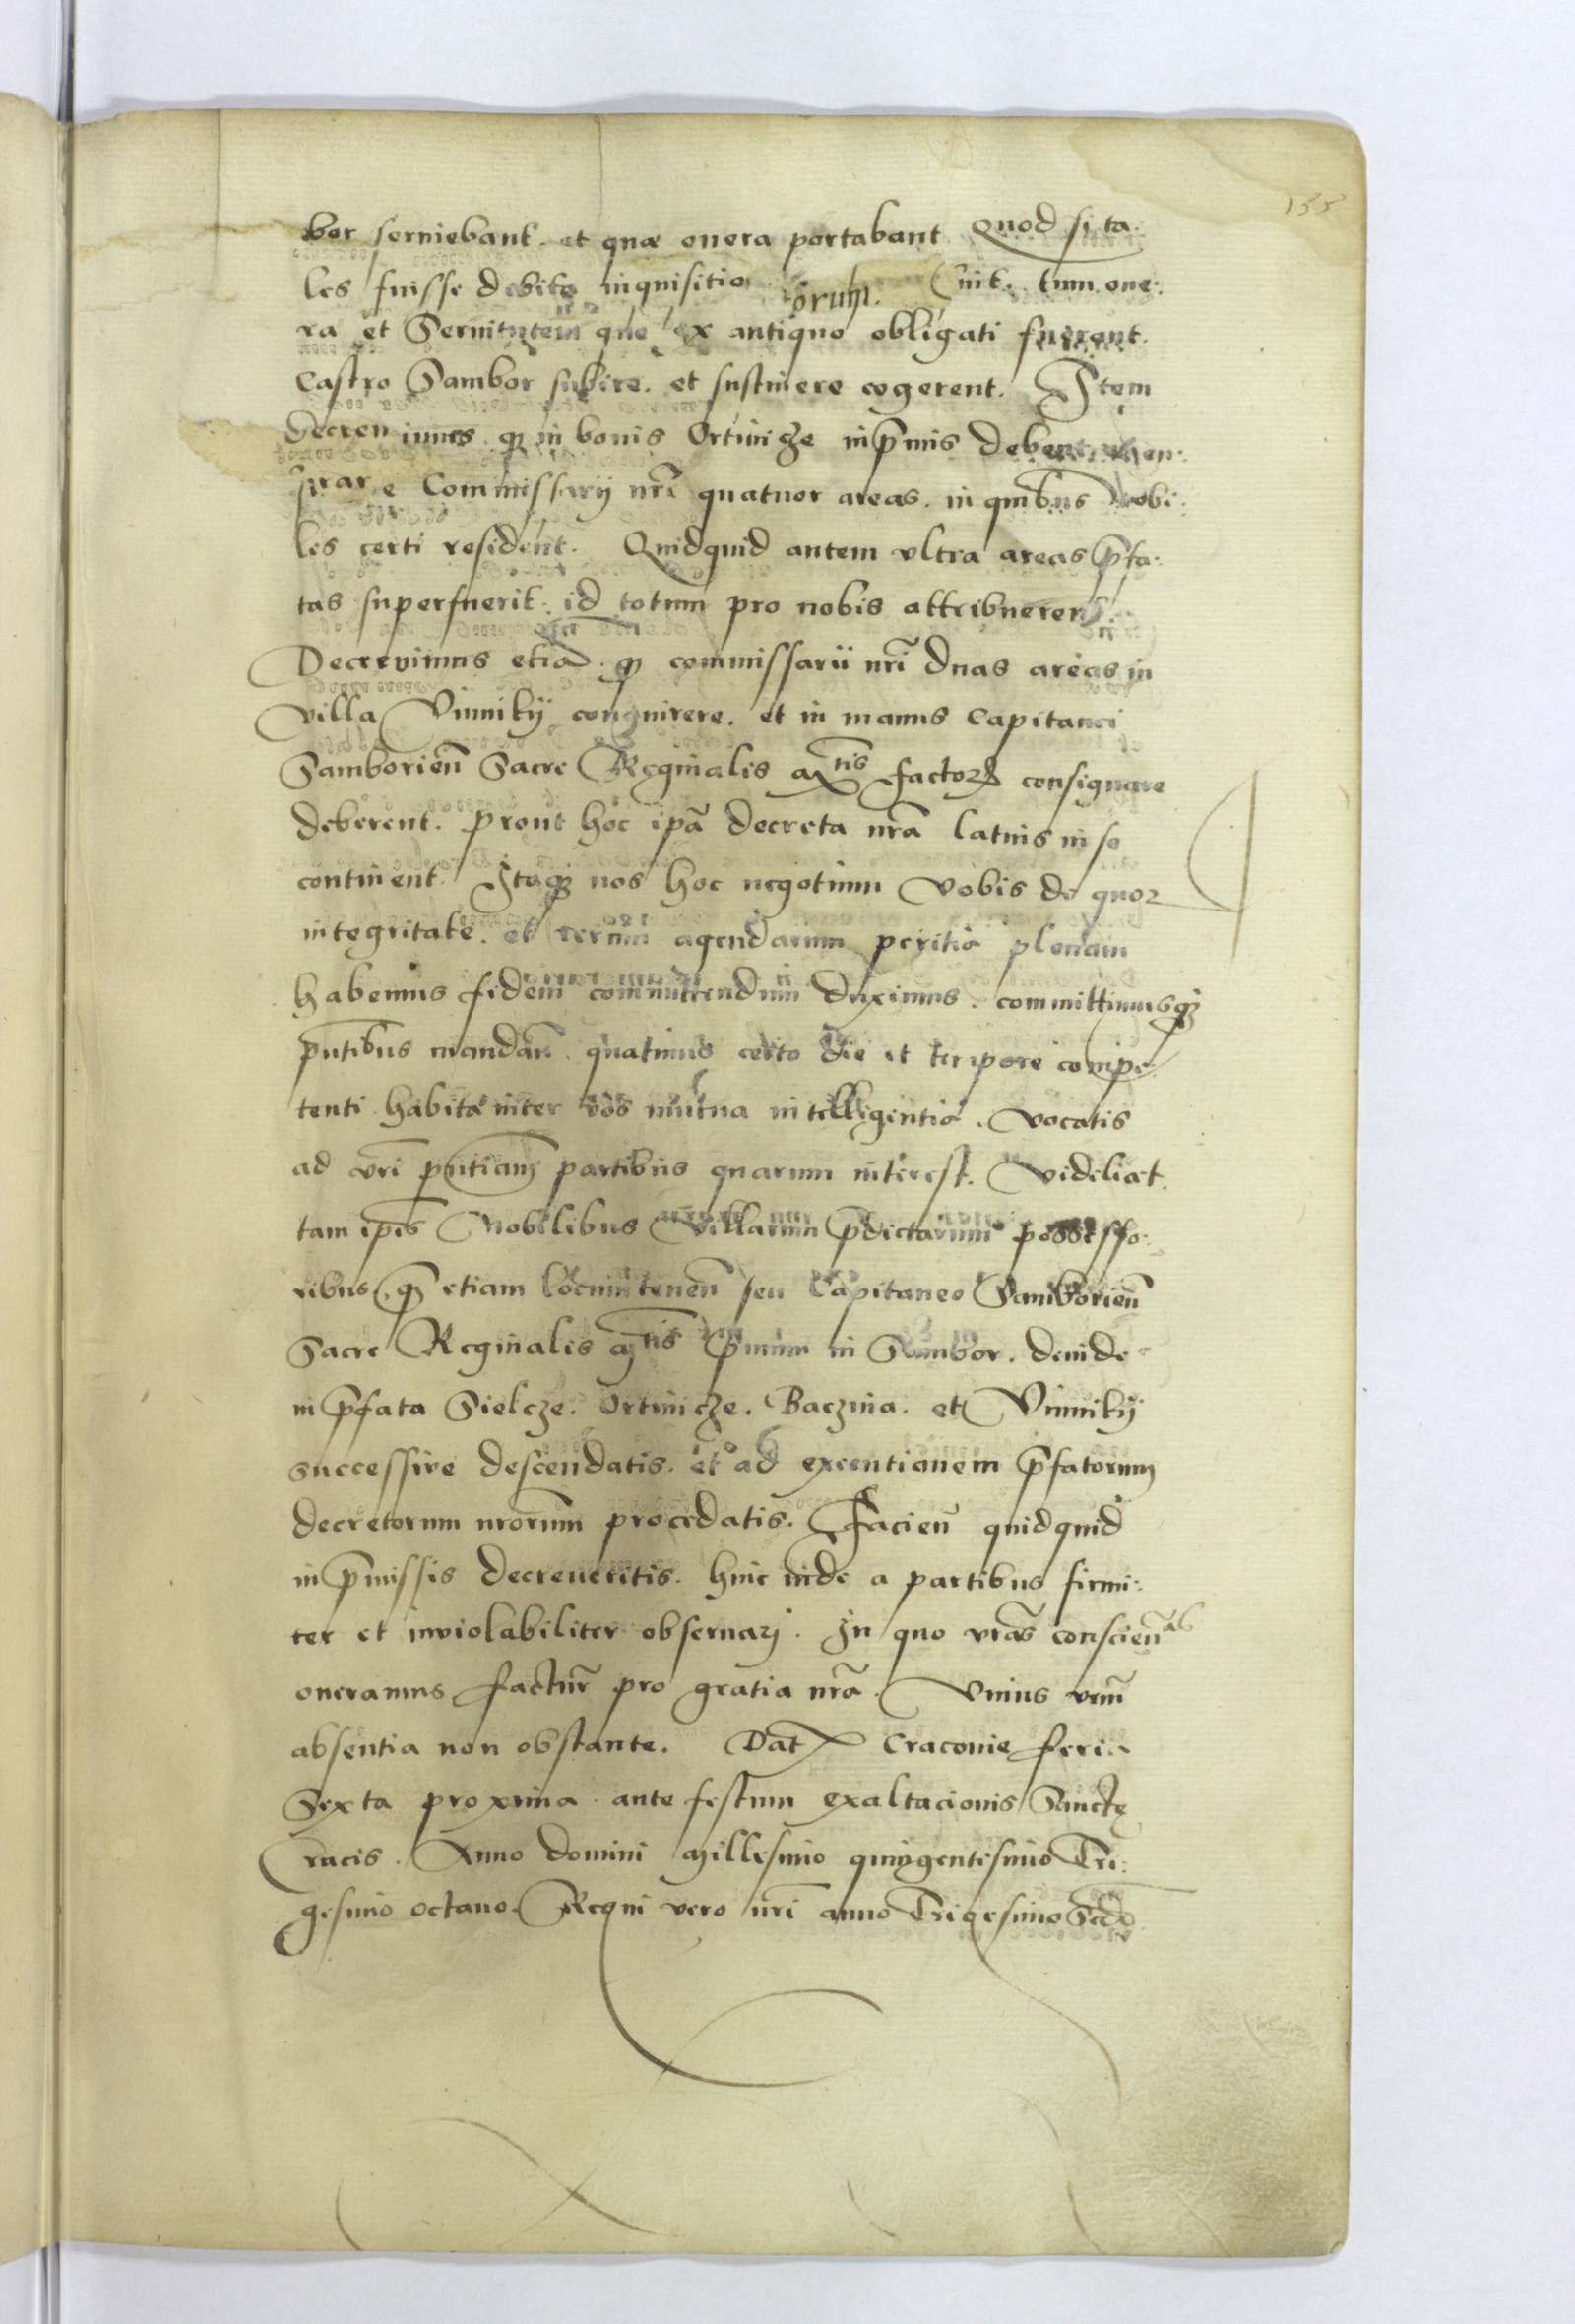 155
bor seruiebant. et quæ onera portabant Quod si ta:
les fuisse debite inquisitio orum. uit. tum one:
ra et Seruitutem que ex antiquo obligati fuerant.
Castro Sambor subire. et sustinere cogerent. Item
decreuimus. qȝ in bonis Ortinicze inp̄mis deberent
Commissarij nr̄i quatuor areas. in quibus Nobi:
les certi resident. Quidquid autem vltra areas p̄fa:
tas superfuerit. id totum pro nobis attribuerent
Decreuimus etiā. qȝ commissarii nr̄i duas areas in
villa Vinnikÿ conquirere. et in manus Capitanei
Samborieñ Sacre Reginalis Mtis factoꝝ consignare
deberent. prout hoc ip̄a decreta nr̄a latius in se
continent. Itaqȝ nos hoc negotium vobis de quoꝝ
integritate. et rerum agendarum peritia plenam
habemus fidem committendum duximus. committimusqȝ
pn̄tibus mandañ. quatinus certo die et tempore compe:
tenti habita inter vos mutua intelligentia. vocatis
ad vr̄i pn̄tiam partibus quarum interest. videlicet.
tam ip̄is Nobilibus Villarum p̄dictarum possesso:
ribus. qȝ etiam locumteneñ seu Capitaneo Samborieñ
Sacre Reginalis Mtis p̄mum in Sambor. deinde
in p̄fata Sielcze. Ortinicze. Baczina. et Vinnikÿ
successiue descendatis. et ad executionem p̄fatorum
decretorum nr̄orum procedatis. Facieñ quidquid
in p̄missis decreueritis. hinc inde a partibus firmi:
ter et inviolabiliter obseruari. In quo vr̄as conscieñas
oneramus facturi pro gratia nr̄a. Vnius vr̄um
absentia non obstante. Dat Craconie feria
Sexta proxima ante festum exaltacionis Sancte
Crucis. Anno domini Millesimo quingentesimo Tri:
gesimo octauo. Regni vero nr̄i anno Trigesimo Scd̄o